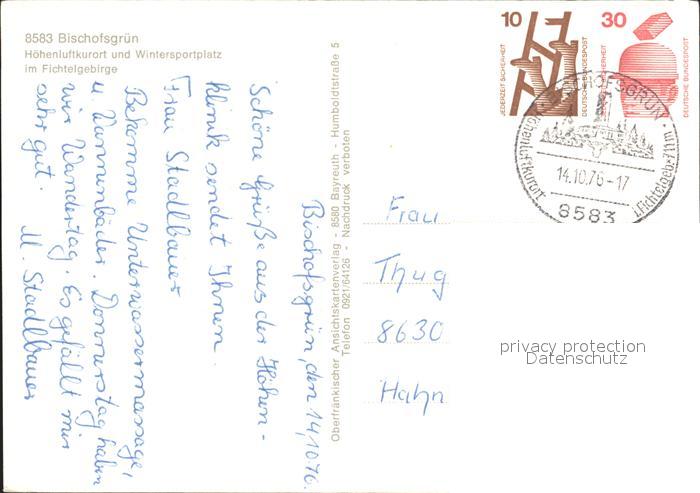 8583 Bischofsgrün
Höhenluftkurort und Wintersportplatz
im Fichtelgebirge
Bischofsgrün, den 14.10.76.
Schöne Grüße aus der Höhen-
klinik sendet Ihnen
Frau Stadlbauer
Bekomme Unterwassermassage,
u. Wannenbäder. Donnerstag haben
wir Wandertag. Es gefällt mir
sehr gut.
M. Stadlbauer
Oberfränkischer Ansichtskartenverlag - 8580 Bayreuth - Humboldtstraße 5
Telefon 0921/64126 - Nachdruck verboten
10
JEDERZEIT SICHERHEIT
DEUTSCHE BUNDESPOST
30
SICHERHEIT
DEUTSCHE BUNDESPOST
BISCHOFSGRÜN
Höhenluftkurort
i. Fichtelgeb. 711m
14.10.76-17
8583
Frau
Thug
8630
Hahn
privacy protection
Datenschutz